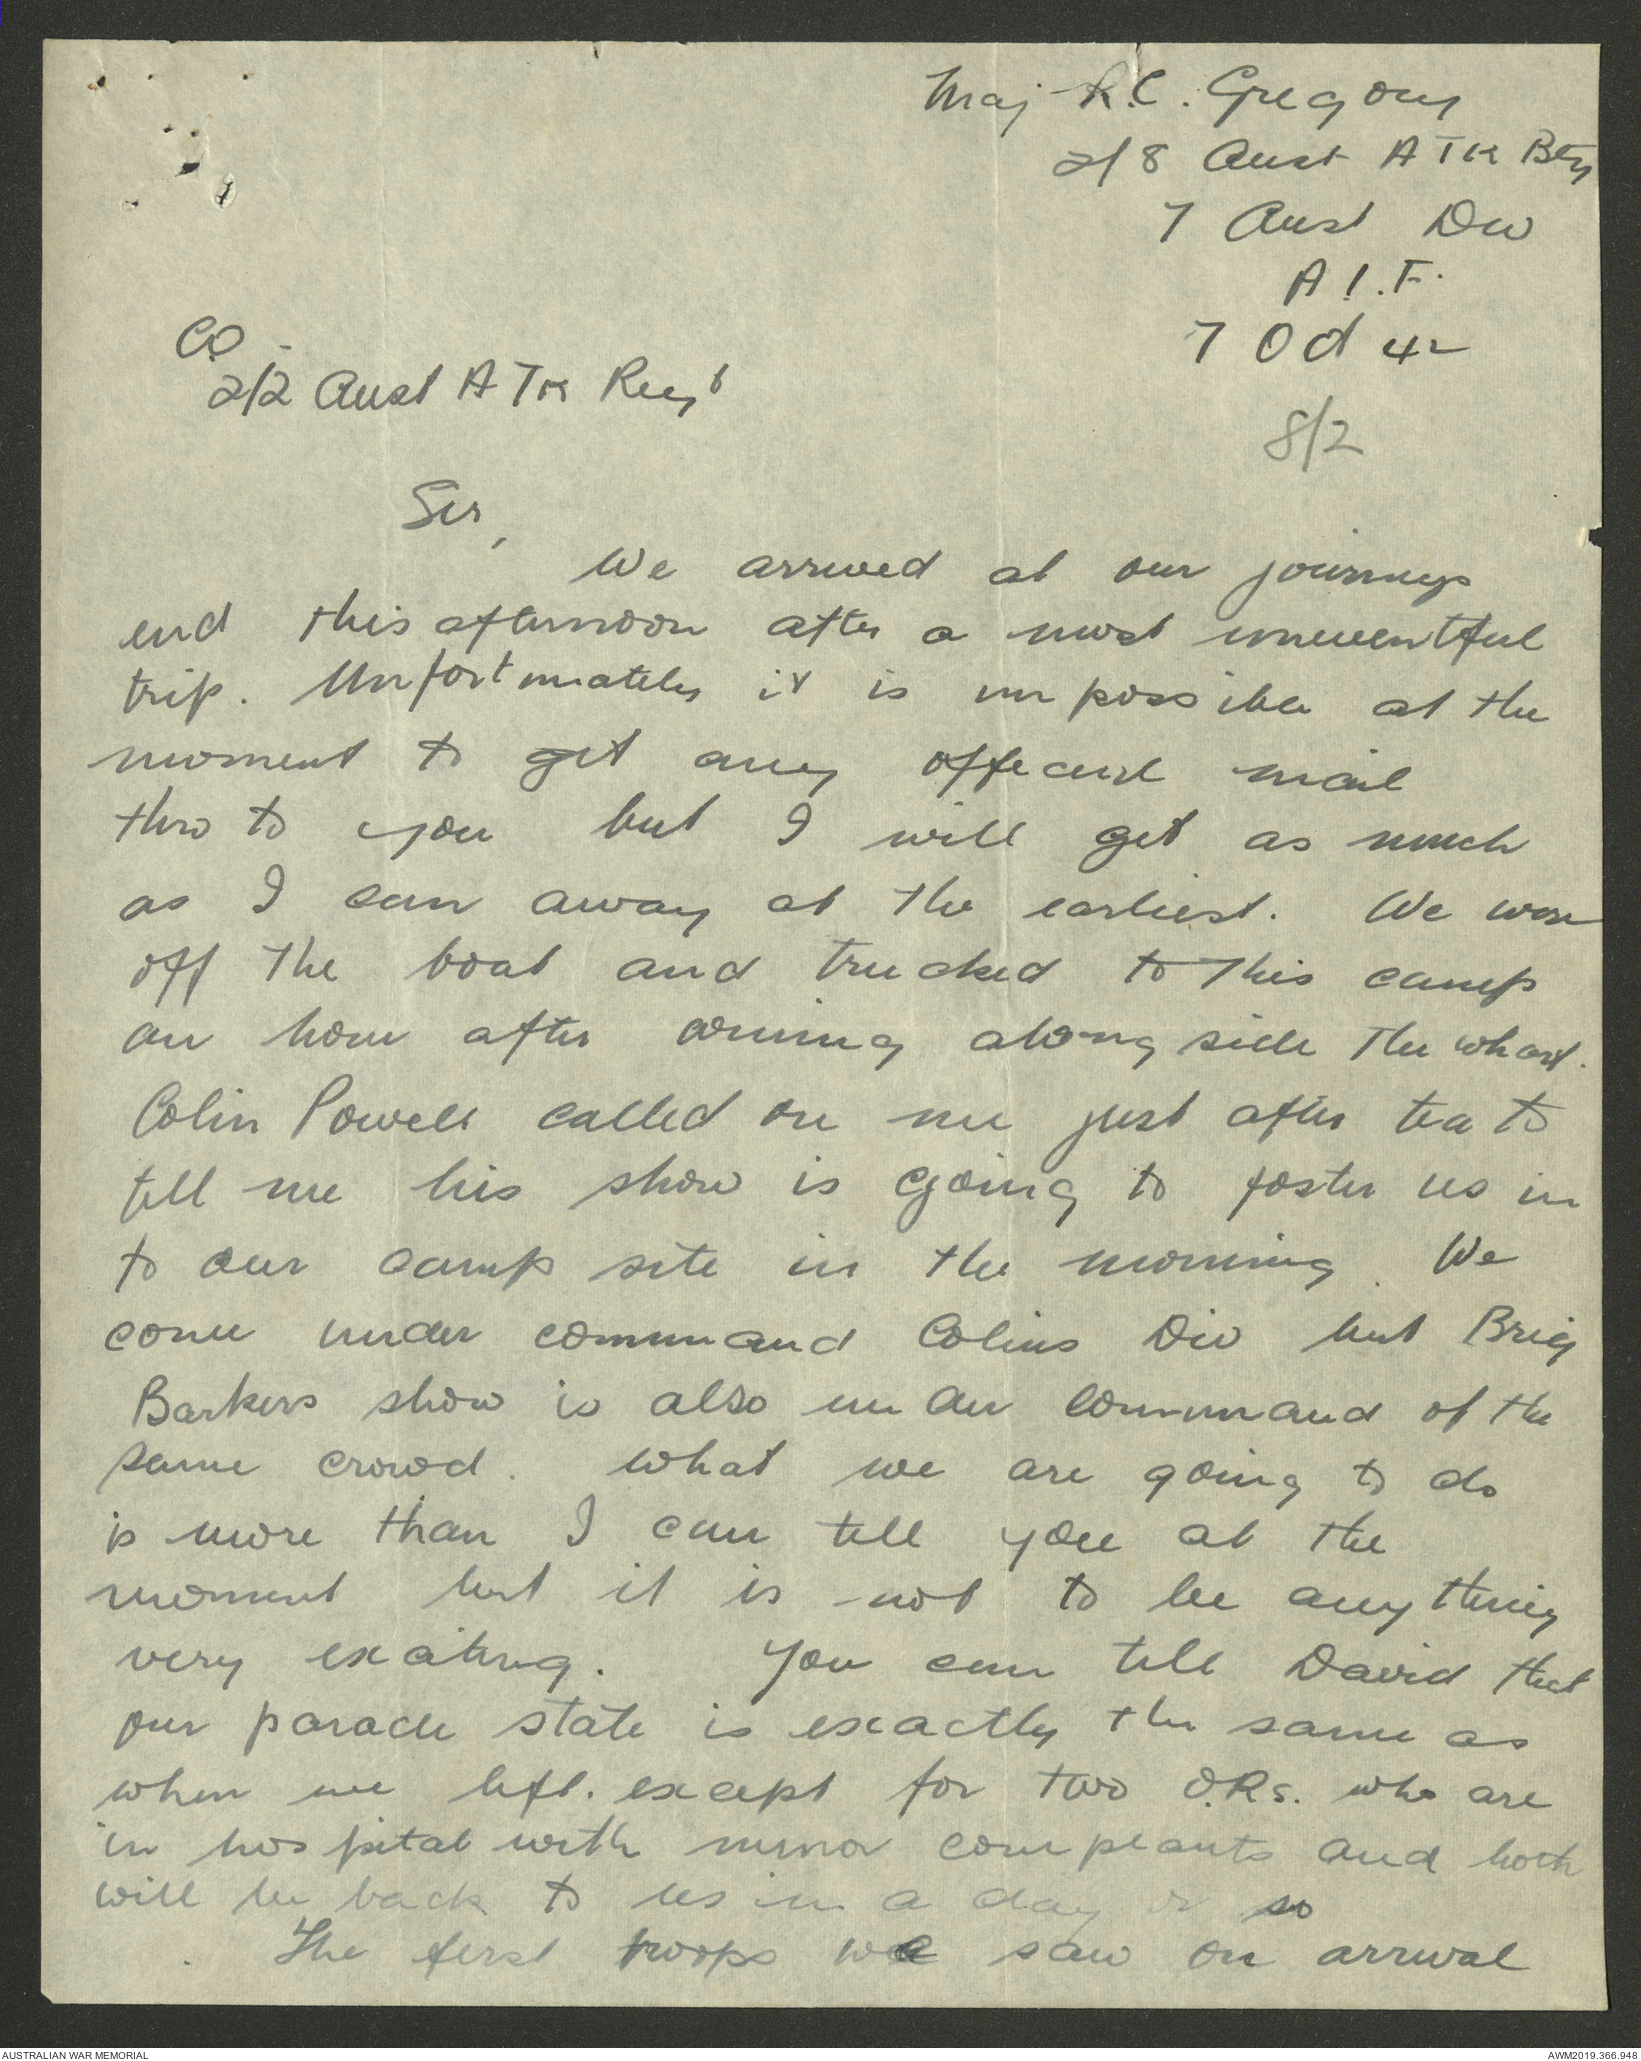 Maj R.C. Gregory
2/8 Aust A TK Bty
7 Aust Div
A.I.F.
7 Oct 42
8/2
CO
2/2 Aust A TK Regt
Sir,
We arrived at our journeys
end this afternoon after a most uneventful
trip. Unfortunately it is impossible at the
moment to get any official mail
thro to you but I will get as much
as I can away at the earliest. We were
off the boat and trucked to this camp
an hour after coming along side the wharf.
Colin Powell called on me just after tea to
tell me his show is going to foster us in
to our camp site in the morning. We
come under command Colins Div but Brig
Barkers show is also under command of the
same crowd. What we are going to do
is more than I can tell you at the
moment but it is not to be anything
very exciting. You can tell David that
our parade state is exactly the same as
when we left. except for two O.Rs. who are
in hospital with minor complaints and both
will be back to us in a day or so
The first troops we saw on arrival
AUSTRALIAN WAR MEMORIAL
AWM2019.366.948